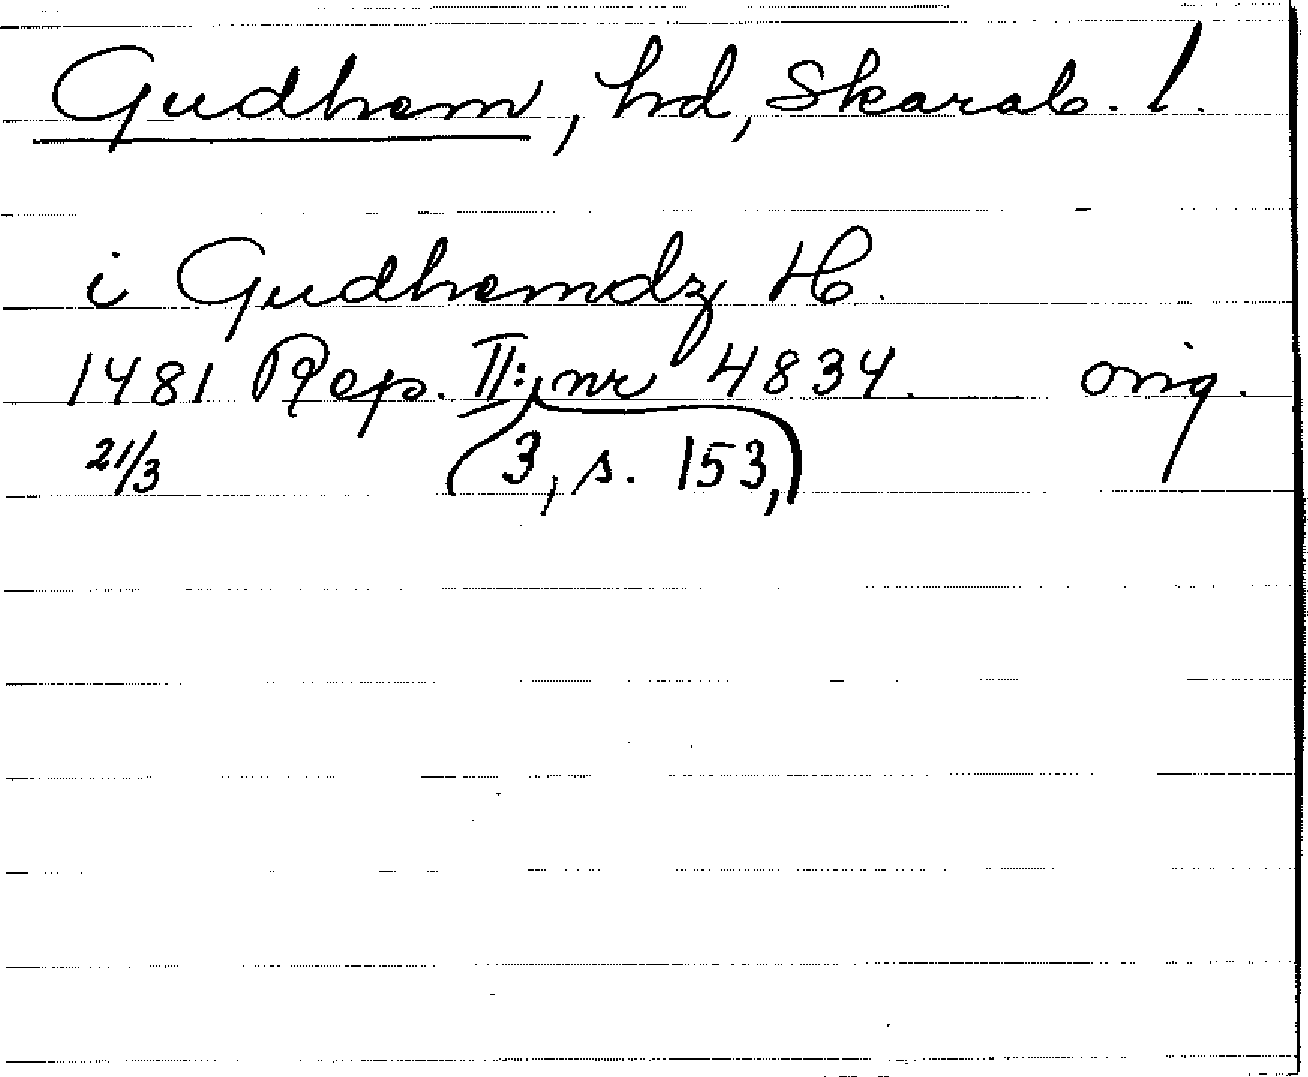 Gudhem, hd, Skarab. l.
i Gudhemdz H.
1481 Rep. II: nr 4834. orig.
21/3 3, s. 153,